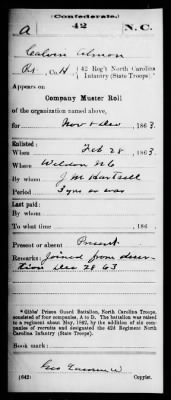 (Confederate.)
A 42 N.C.
Calvin Almon
Pvt, Co. H, 42 Reg't North Carolina
Infantry (State Troops).*
Appears on
Company Muster Roll
of the organization named above,
for Nov & Dec, 1863.
Enlisted:
When Feb 28, 1863.
Where Weldon N C
By whom J M Hartsell
Period 3 yrs or war
Last paid:
By whom
To what time , 186 .
Present or absent Present
Remarks: Joined from deser-
tion Dec 28 63
* Gibbs' Prison Guard Battalion, North Carolina Troops,
consisted of four companies, A to D. The battalion was raised
to a regiment about May, 1862, by the addition of six com-
panies of recruits and designated the 42d Regiment North
Carolina Infantry (State Troops).
Book mark:
Geo
(642) Copyist.